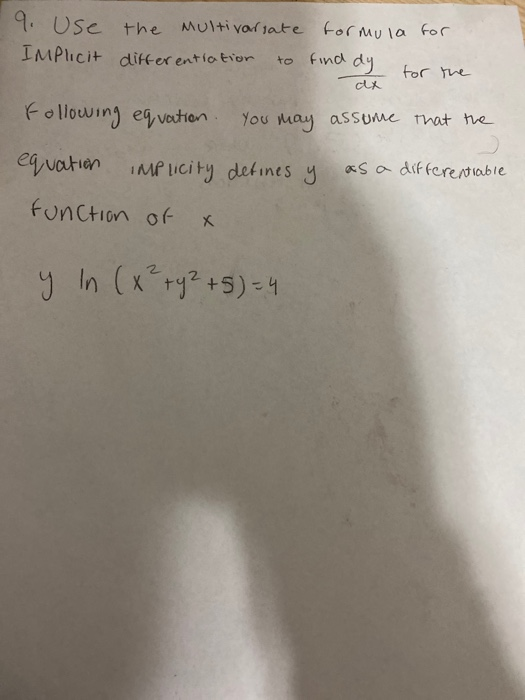 9. Use the Multivariate formula for
IMPlicit differentiation to find dy/dx for the
Following equation. You may assume that the
equation implicity defines y as a differentiable
function of x
y ln (x²+y²+5)=4